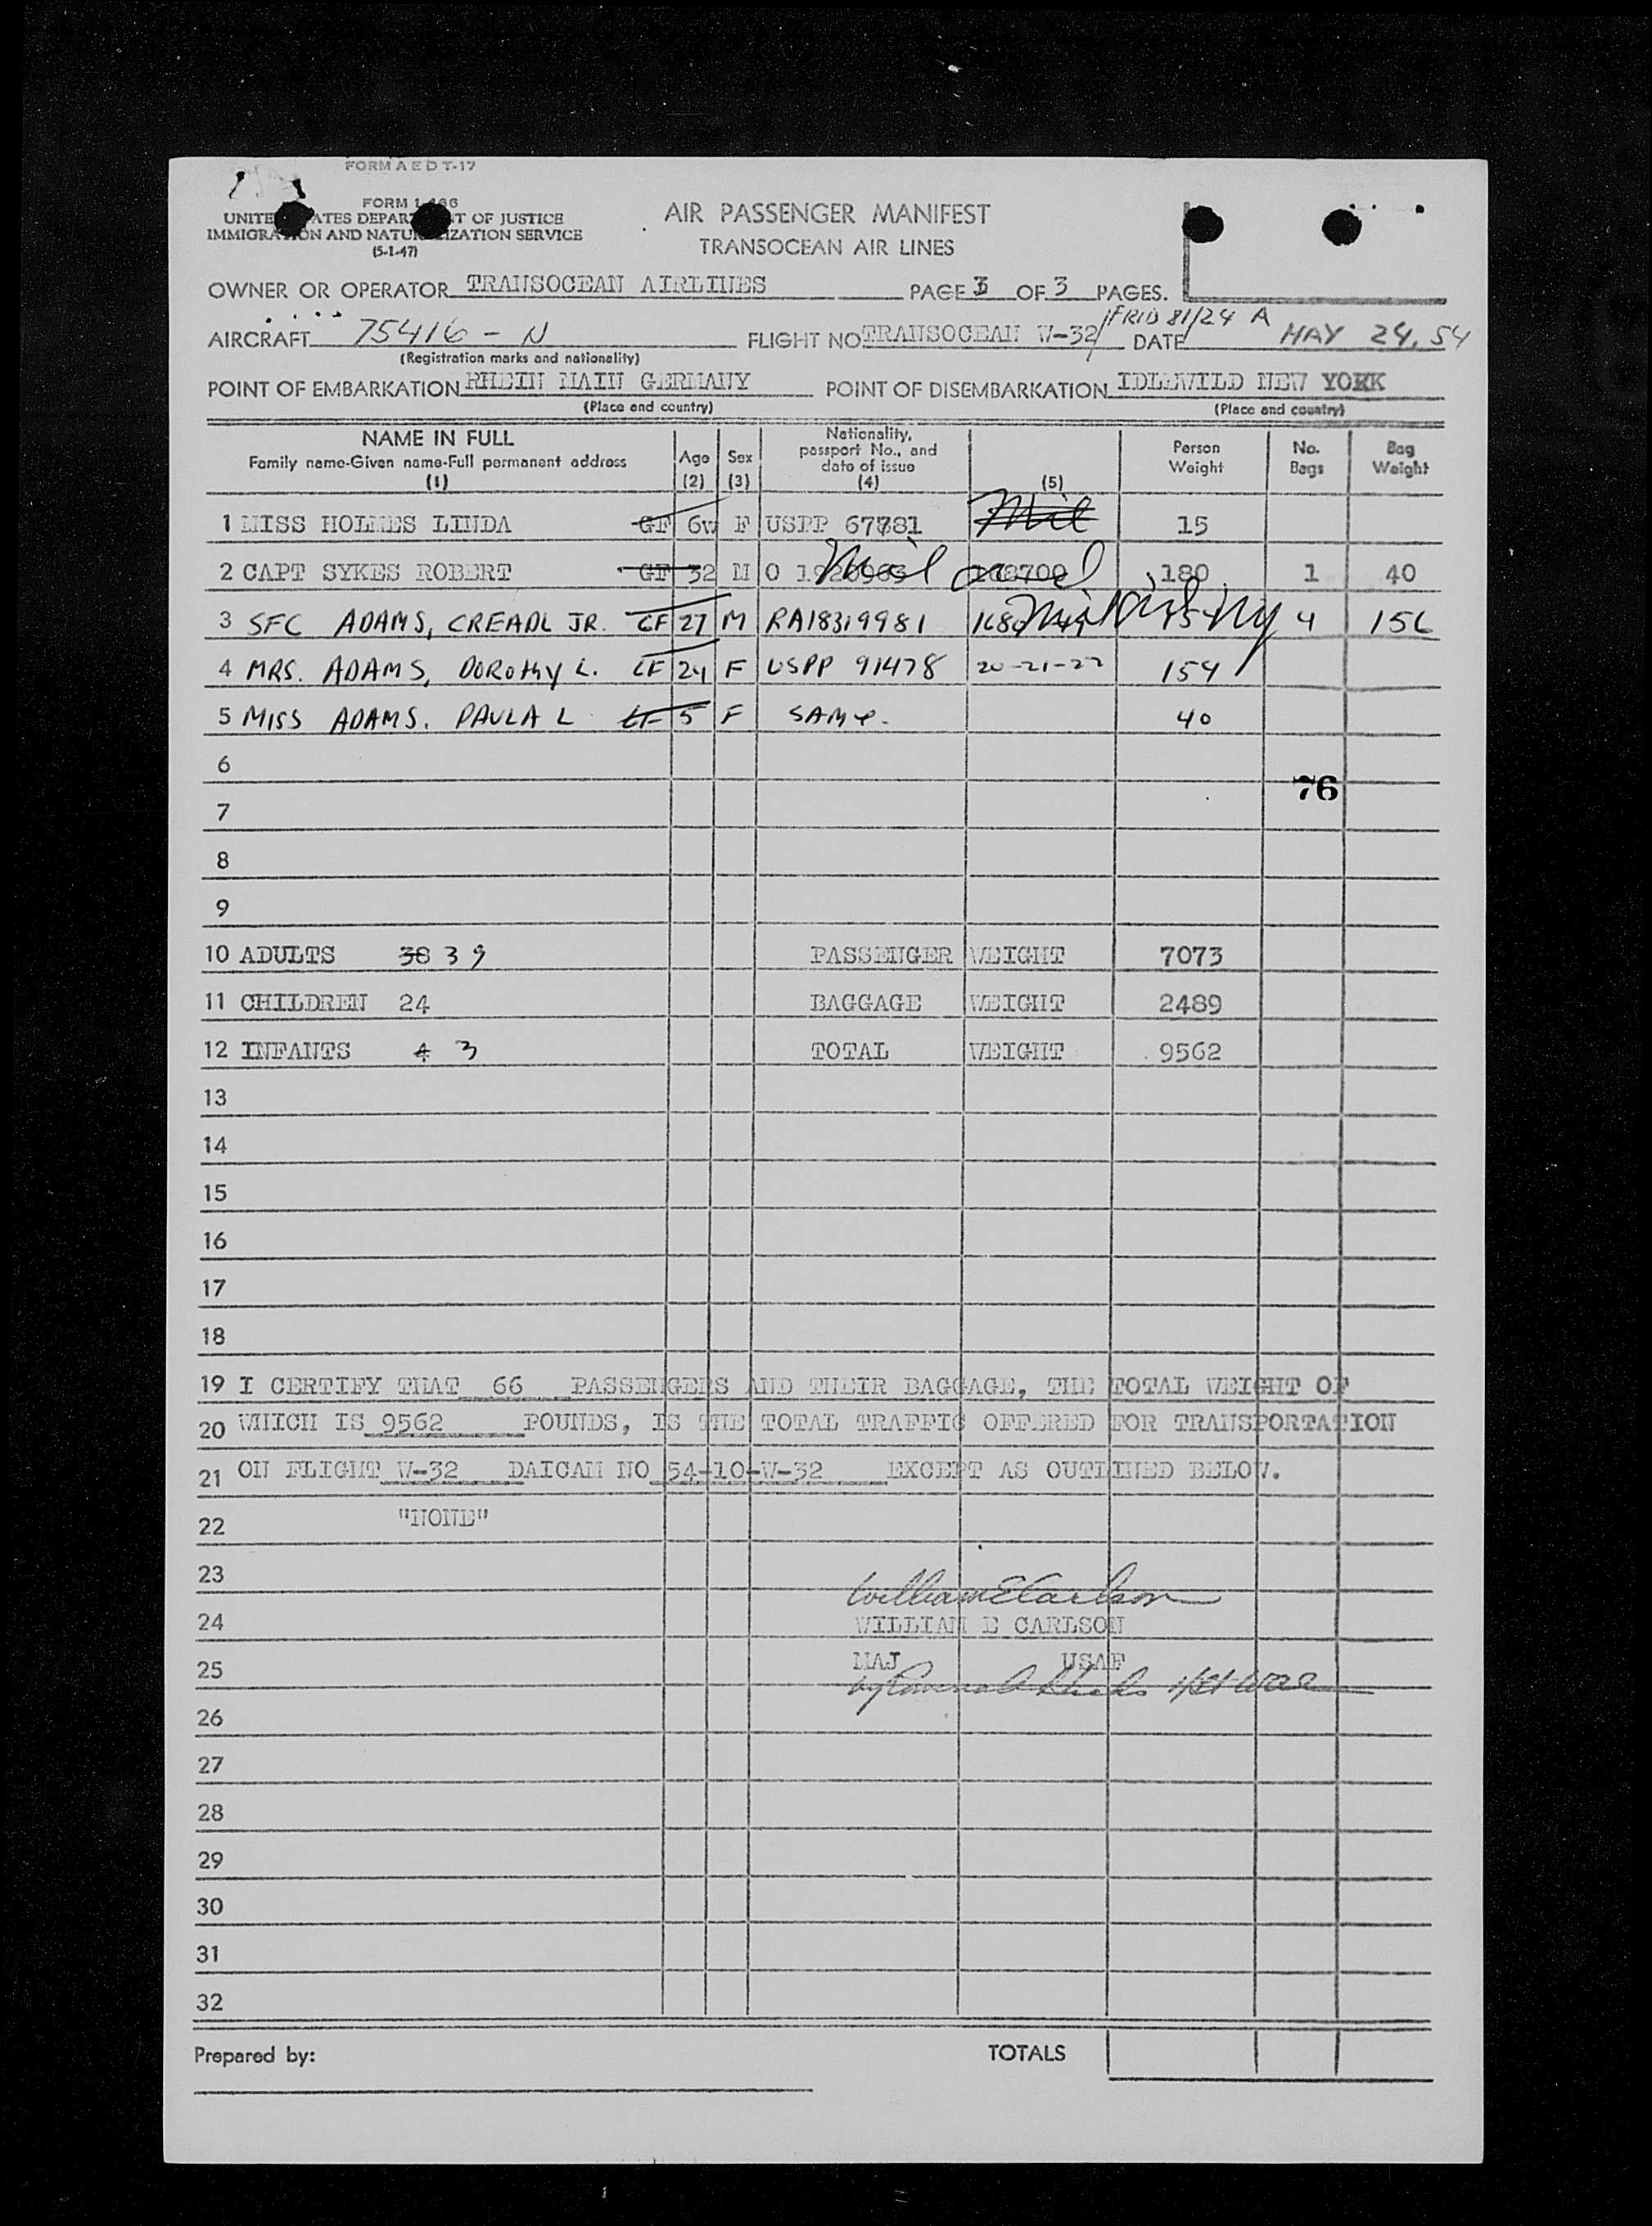 FORM A E D T-17
FORM
UNITE ATES DEPAR NT OF JUSTICE
IMMIGRA ON AND NATU IZATION SERVICE
(5-1-47)
AIR PASSENGER MANIFEST
TRANSOCEAN AIR LINES
OWNER OR OPERATOR TRANSOCEAN AIRLINES PAGE 3 OF 3 PAGES.
AIRCRAFT 75416 - N FLIGHT NO TRANSOCEAN W-32/FRID 81/24 A DATE MAY 24, 54
(Registration marks and nationality)
POINT OF EMBARKATION RHEIN MAIN GERMANY POINT OF DISEMBARKATION IDLEWILD NEW YORK
(Place and country) (Place and country)
NAME IN FULL
Family name-Given name-Full permanent address
(1)
Age
(2)
Sex
(3)
Nationality,
passport No., and
date of issue
(4)
(5)
Person
Weight
No.
Bags
Bag
Weight
1 MISS HOLMES LINDA GF 6w F USPP 67881 Mil 15
2 CAPT SYKES ROBERT GF 32 M O Mil 180 1 40
3 SFC ADAMS, CREADL JR. GF 27 M RA18319981 4 156
4 MRS. ADAMS, DOROTHY L. GF 24 F USPP 91478 20-21-22 154
5 MISS ADAMS. PAULA L GF 5 F SAME. 40
6
76
7
8
9
10 ADULTS 38 39 PASSENGER WEIGHT 7073
11 CHILDREN 24 BAGGAGE WEIGHT 2489
12 INFANTS 4 3 TOTAL WEIGHT 9562
13
14
15
16
17
18
19 I CERTIFY THAT 66 PASSENGERS AND THEIR BAGGAGE, THE TOTAL WEIGHT OF
20 WHICH IS 9562 POUNDS, IS THE TOTAL TRAFFIC OFFERED FOR TRANSPORTATION
21 ON FLIGHT W-32 DAICAM NO 54-10-W-32 EXCEPT AS OUTLINED BELOW.
22 "NONE"
23 William E Carlson
24 WILLIAM E CARLSON
25 MAJ USAF
26
27
28
29
30
31
32
Prepared by: TOTALS